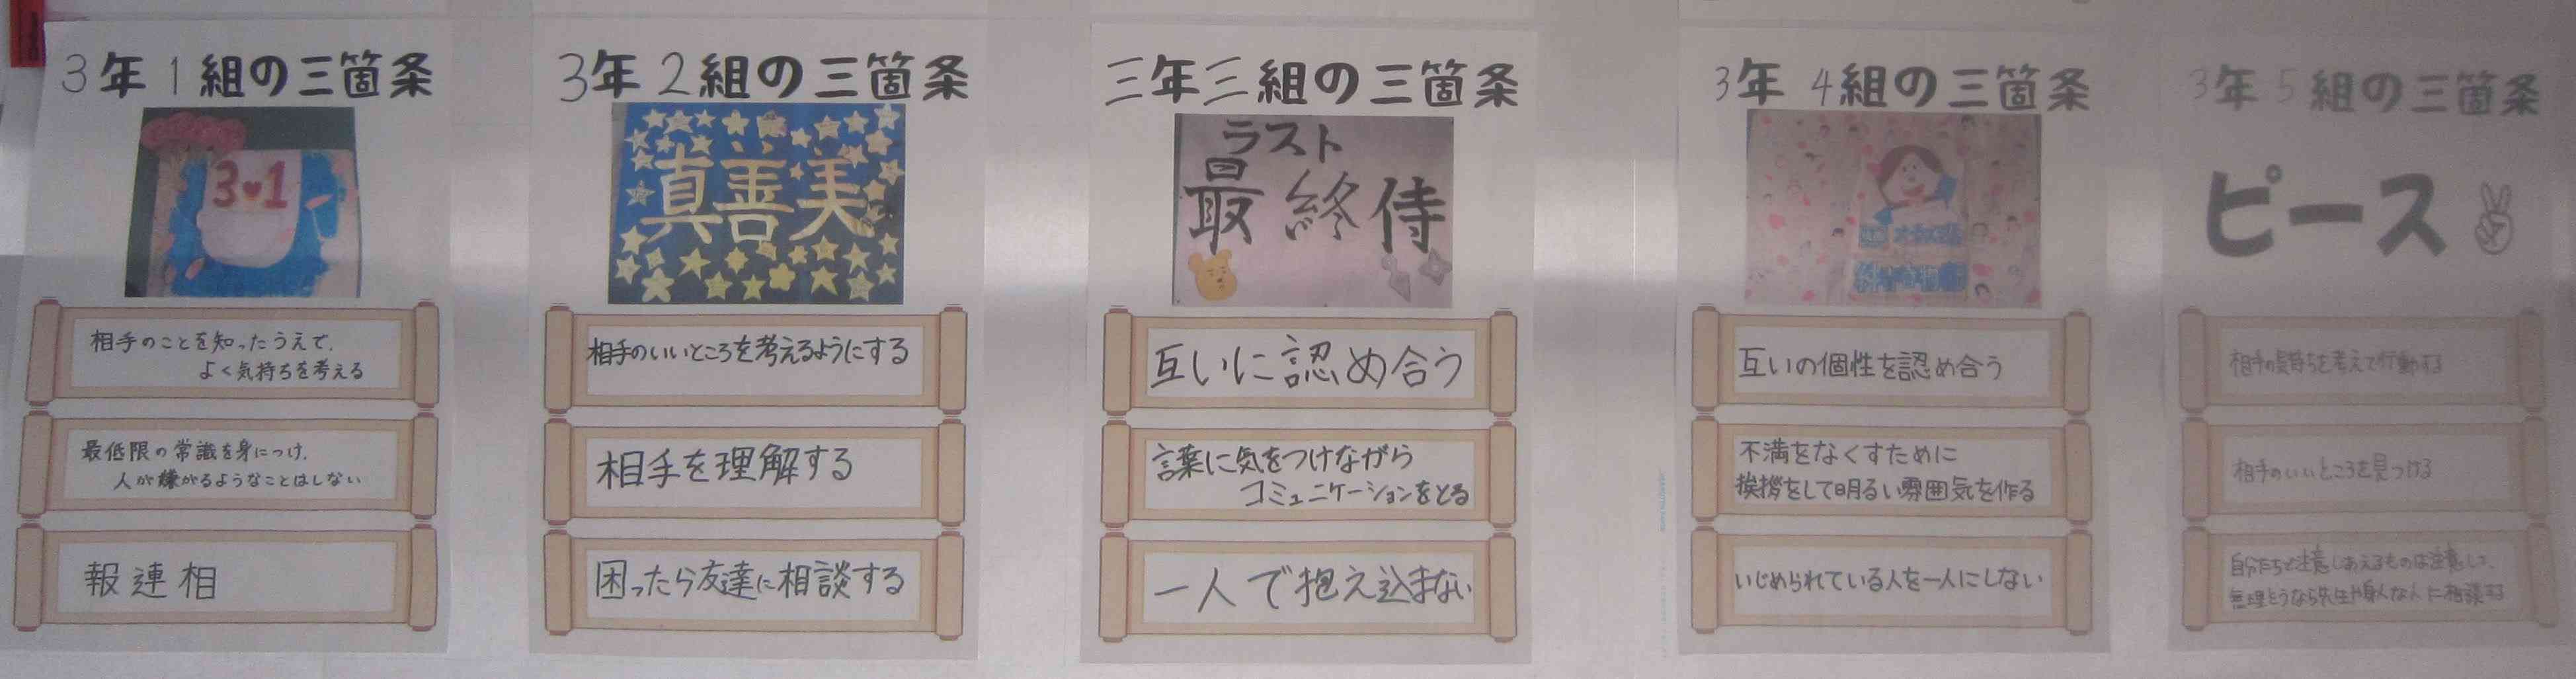 3年1組の三箇条
3♥1
相手のことを知ったうえで、
よく気持ちを考える
最低限の常識を身につけ、
人が嫌がるようなことはしない
報連相
3年2組の三箇条
真善美
相手のいいところを考えるようにする
相手を理解する
困ったら友達に相談する
三年三組の三箇条
ラスト
最終侍
互いに認め合う
言葉に気をつけながら
コミュニケーションをとる
一人で抱え込まない
3年4組の三箇条
互いの個性を認め合う
不満をなくすために
挨拶をして明るい雰囲気を作る
いじめられている人を一人にしない
3年5組の三箇条
ピース
相手の気持ちを考えて行動する
相手のいいところを見つける
自分たちで注意しあえるものは注意して、
無理そうなら先生や身近な人に相談する